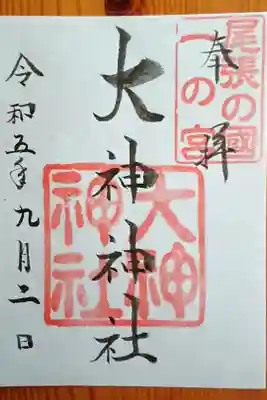 奉拝
尾張の國
一の宮
大神神社
大神
神社
令和五年九月二日